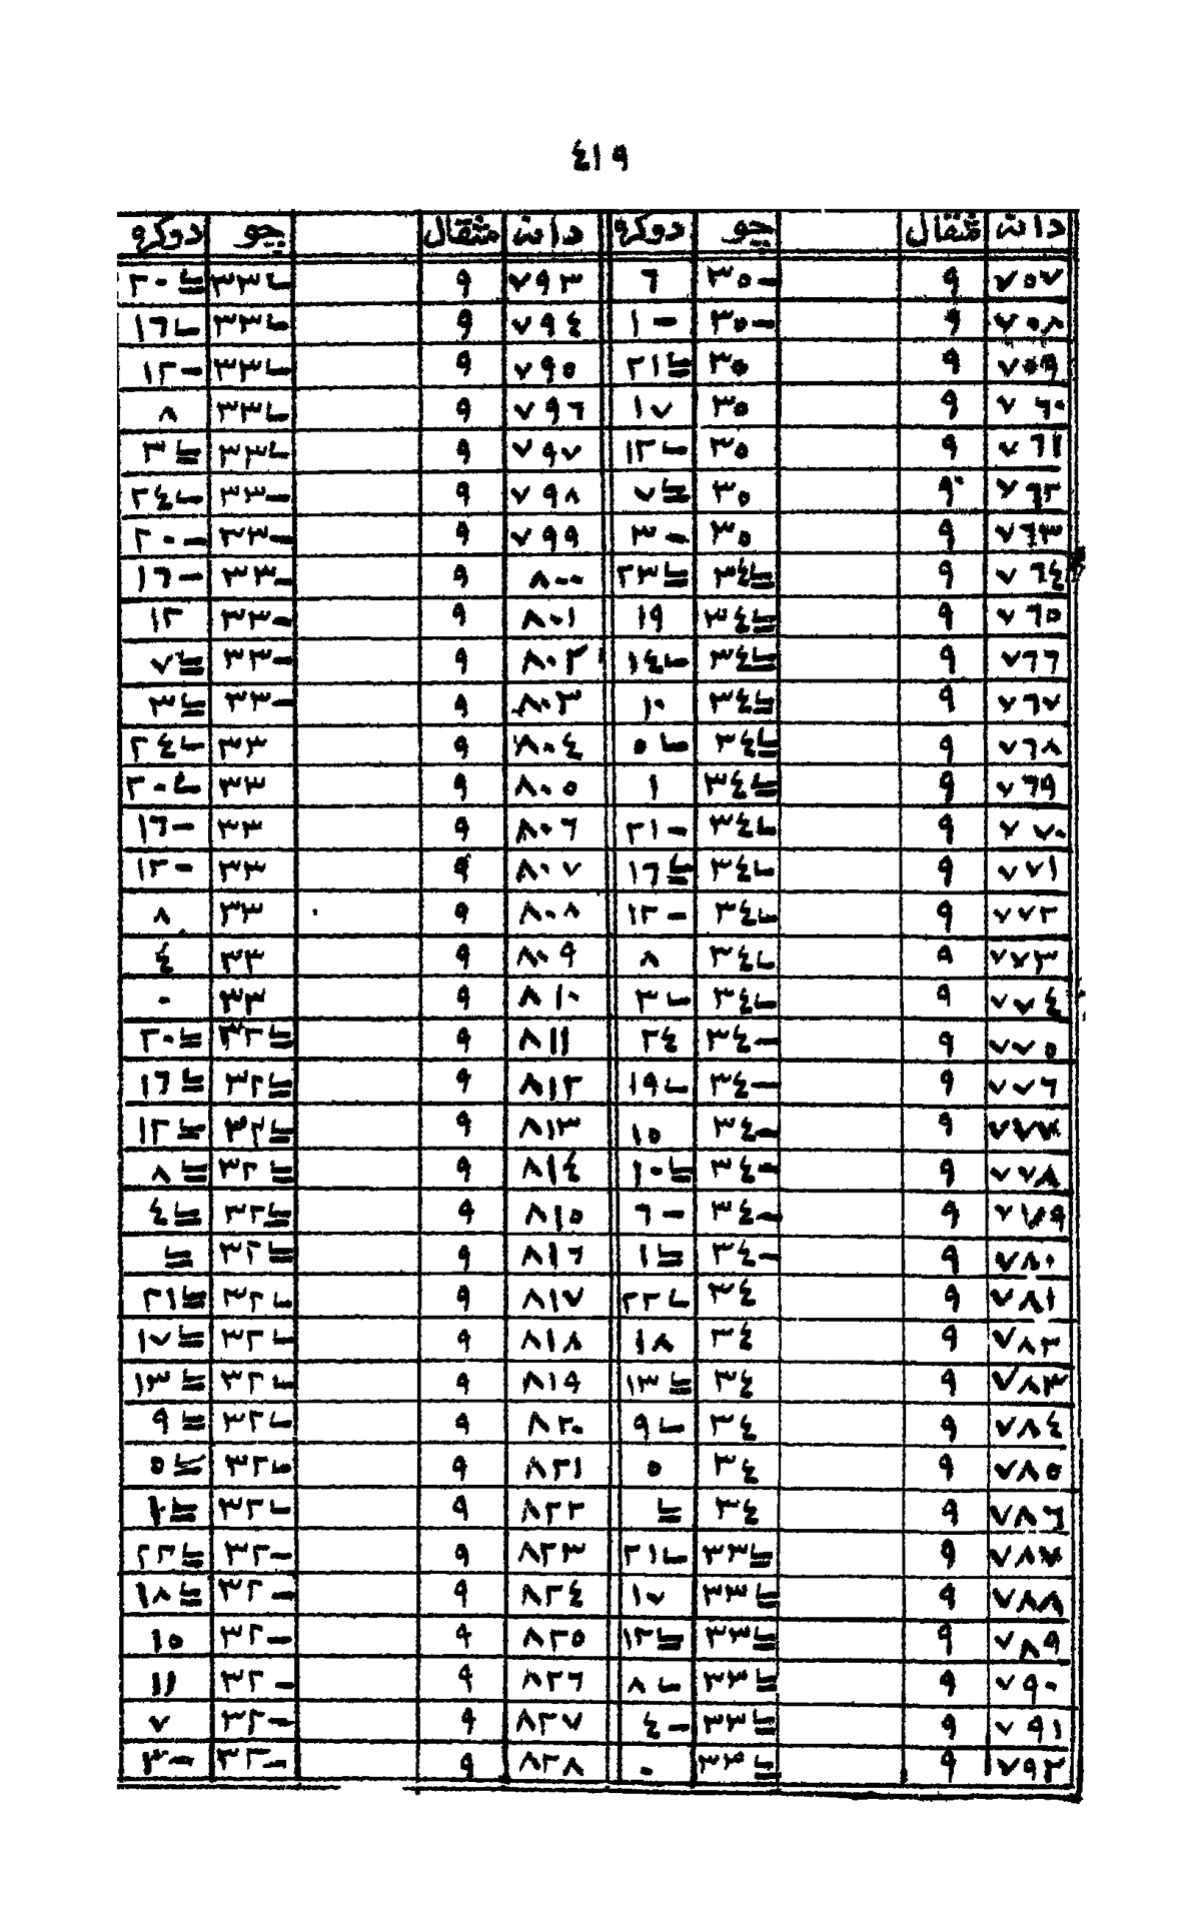 ٤١٩
دانه مثقال چو دوكره دانه مثقال چو دوكره
٧٥٧ ٩ ٣٥- ٦ ٧٩٣ ٩ ٣٣ ٢٠
٧٥٨ ٩ ٣٥- ١- ٧٩٤ ٩ ٣٣ ١٦
٧٥٩ ٩ ٣٥ ٢١ ٧٩٥ ٩ ٣٣ ١٢-
٧٦٠ ٩ ٣٥ ١٧ ٧٩٦ ٩ ٣٣ ٨
٧٦١ ٩ ٣٥ ١٢ ٧٩٧ ٩ ٣٣ ٣
٧٦٢ ٩ ٣٥ ٧ ٧٩٨ ٩ ٣٣- ٢٤
٧٦٣ ٩ ٣٥ ٣- ٧٩٩ ٩ ٣٣- ٢٠-
٧٦٤ ٩ ٣٤ ٢٣ ٨٠٠ ٩ ٣٣- ١٦-
٧٦٥ ٩ ٣٤ ١٩ ٨٠١ ٩ ٣٣- ١٢
٧٦٦ ٩ ٣٤ ١٤ ٨٠٢ ٩ ٣٣- ٧
٧٦٧ ٩ ٣٤ ١٠ ٨٠٣ ٩ ٣٣- ٣
٧٦٨ ٩ ٣٤ ٥ ٨٠٤ ٩ ٣٣ ٢٤
٧٦٩ ٩ ٣٤ ١ ٨٠٥ ٩ ٣٣ ٢٠
٧٧٠ ٩ ٣٤ ٢١- ٨٠٦ ٩ ٣٣ ١٦-
٧٧١ ٩ ٣٤ ١٦ ٨٠٧ ٩ ٣٣ ١٢-
٧٧٢ ٩ ٣٤ ١٢- ٨٠٨ ٩ ٣٣ ٨
٧٧٣ ٩ ٣٤ ٨ ٨٠٩ ٩ ٣٣ ٤
٧٧٤ ٩ ٣٤ ٣ ٨١٠ ٩ ٣٣ ٠
٧٧٥ ٩ ٣٤- ٢٤ ٨١١ ٩ ٣٢ ٢٠
٧٧٦ ٩ ٣٤- ١٩ ٨١٢ ٩ ٣٢ ١٦
٧٧٧ ٩ ٣٤- ١٥ ٨١٣ ٩ ٣٢ ١٢
٧٧٨ ٩ ٣٤- ١٠ ٨١٤ ٩ ٣٢ ٨
٧٧٩ ٩ ٣٤- ٦- ٨١٥ ٩ ٣٢ ٤
٧٨٠ ٩ ٣٤- ١ ٨١٦ ٩ ٣٢
٧٨١ ٩ ٣٤ ٢٢ ٨١٧ ٩ ٣٢ ٢١
٧٨٢ ٩ ٣٤ ١٨ ٨١٨ ٩ ٣٢ ١٧
٧٨٣ ٩ ٣٤ ١٣ ٨١٩ ٩ ٣٢ ١٣
٧٨٤ ٩ ٣٤ ٩ ٨٢٠ ٩ ٣٢ ٩
٧٨٥ ٩ ٣٤ ٥ ٨٢١ ٩ ٣٢ ٥
٧٨٦ ٩ ٣٤ ٨٢٢ ٩ ٣٢ ١
٧٨٧ ٩ ٣٣ ٢١ ٨٢٣ ٩ ٣٢- ٢٢
٧٨٨ ٩ ٣٣ ١٧ ٨٢٤ ٩ ٣٢- ١٨
٧٨٩ ٩ ٣٣ ١٢ ٨٢٥ ٩ ٣٢- ١٥
٧٩٠ ٩ ٣٣ ٨ ٨٢٦ ٩ ٣٢- ١١
٧٩١ ٩ ٣٣ ٤- ٨٢٧ ٩ ٣٢- ٧
٧٩٢ ٩ ٣٣ ٠ ٨٢٨ ٩ ٣٢- ٣-